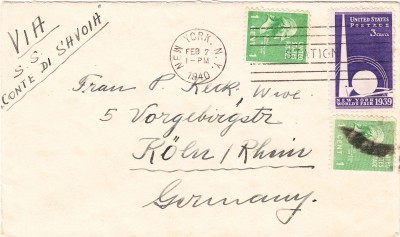 VIA
S.S.
"CONTE DI SAVOIA"
NEW YORK, N.Y.
FEB 2
1-PM
1940
1 CENT 1
UNITED STATES
POSTAGE
3 CENTS
NEW YORK
WORLD'S FAIR 1939
Frau P. Keck. Wwe.
5 Vorgebirgstr
Köln/Rhein
Germany.